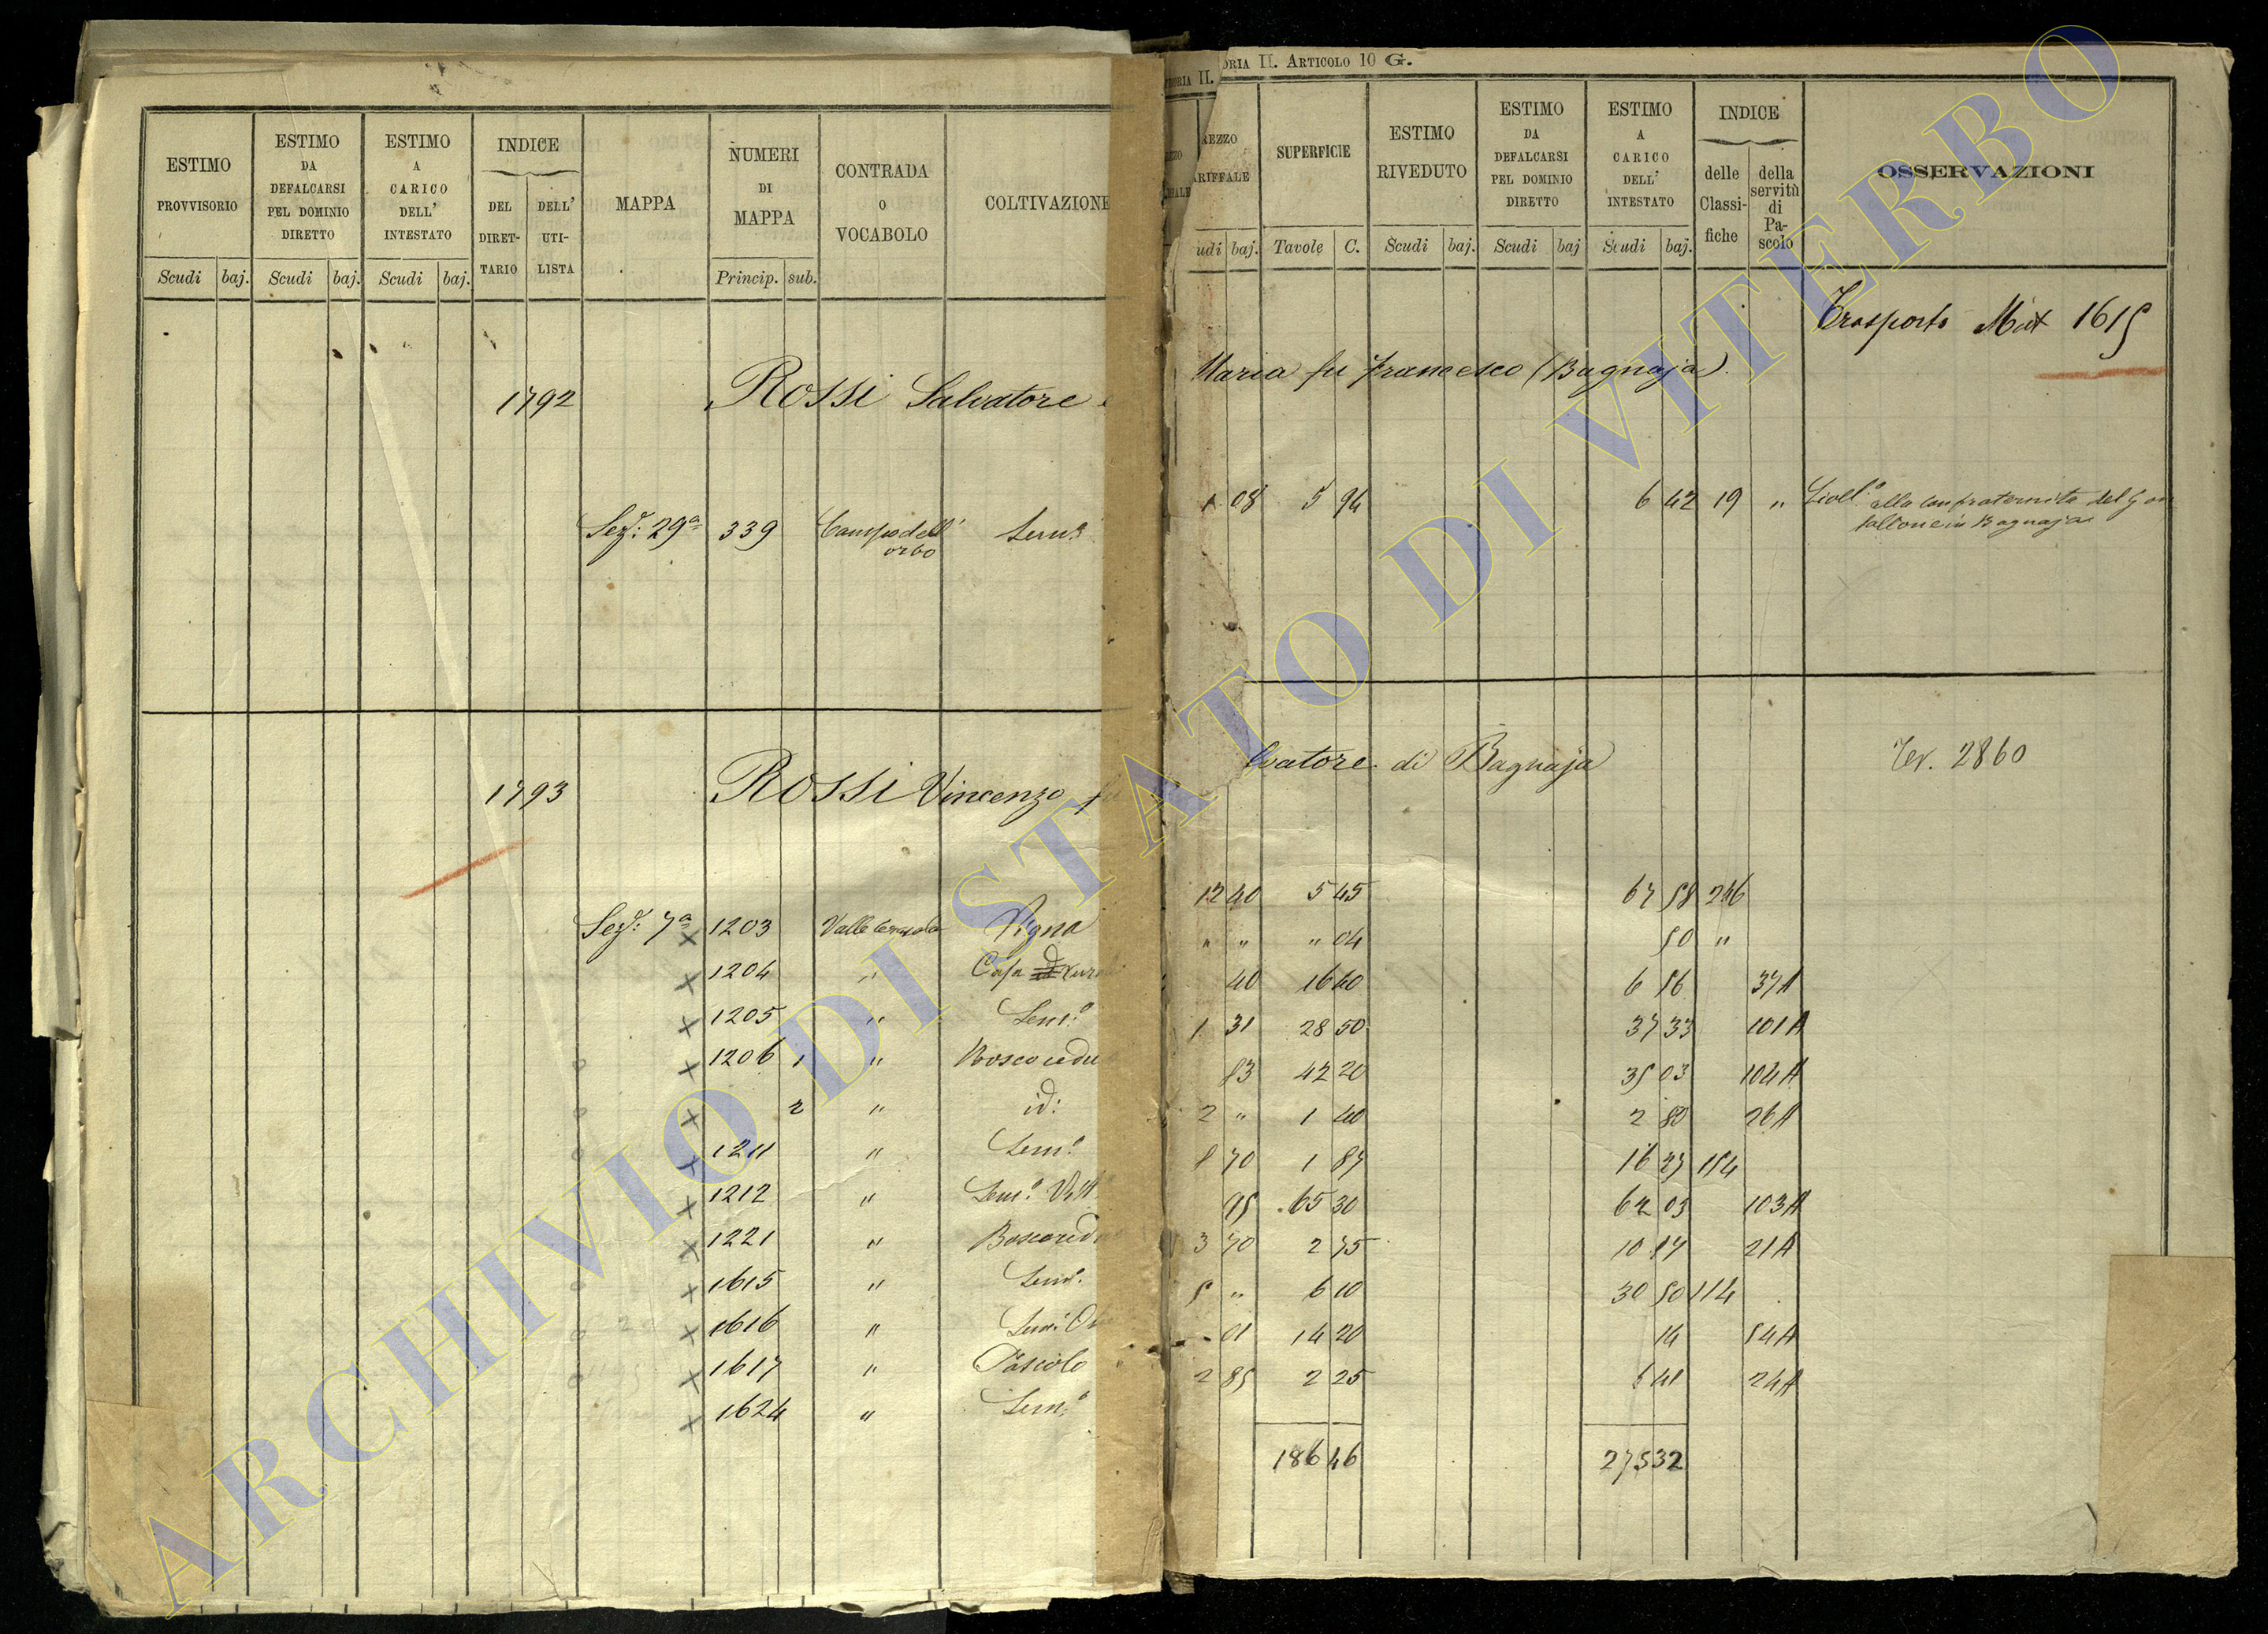 ORIA II. ARTICOLO 10 G.
ESTIMO PROVVISORIO
ESTIMO DA DEFALCARSI PEL DOMINIO DIRETTO
ESTIMO A CARICO DELL' INTESTATO
INDICE
DEL DIRETTARIO
DELL' UTILISTA
MAPPA
NUMERI DI MAPPA
CONTRADA O VOCABOLO
COLTIVAZIONE
Scudi baj. Scudi baj. Scudi baj. Princip. sub.
REZZO
ARIFFALE
SUPERFICIE
ESTIMO RIVEDUTO
ESTIMO DA DEFALCARSI PEL DOMINIO DIRETTO
ESTIMO A CARICO DELL' INTESTATO
INDICE
delle Classifiche
della servitù di Pascolo
OSSERVAZIONI
udi baj. Tavole C. Scudi baj. Scudi baj Scudi baj.
Trasporto Mut 1615
1792 ROSSI Salvatore
Maria fu Francesco (Bagnaja).
Sez.e 29a 339 Campo dell' orbo Sem.o
1 08 5 94 6 42 19 " Livell.o alla confraternita del Gon
falcone in Bagnaja
1793 ROSSI Vincenzo fu
lvatore di Bagnaja
Ter. 2860
Sez.e 7a x 1203 Vigna
x 1204 " Casa
x 1205 " Sem.o
x 1206 1 " Bosco cedu
x 2 " id:
x 1211 " Sem.o
x 1212 " Sem.o Vit
x 1221 " Bosco ced
x 1615 " Sem.o
x 1616 "
x 1617 " Pascolo
x 1624 " Sem.o
12 40 5 45 67 58 246
" " " 04 50 "
40 16 40 6 56 37A
1 31 28 50 37 33 101A
83 42 20 35 03 104A
2 " 1 40 2 80 26A
8 70 1 87 16 27 154
95 65 30 62 03 103A
3 70 2 75 10 17 21A
5 " 6 10 30 50 114
01 14 20 14 54A
2 85 2 25 6 41 24A
186 46 275 32
ARCHIVIO DI STATO DI VITERBO